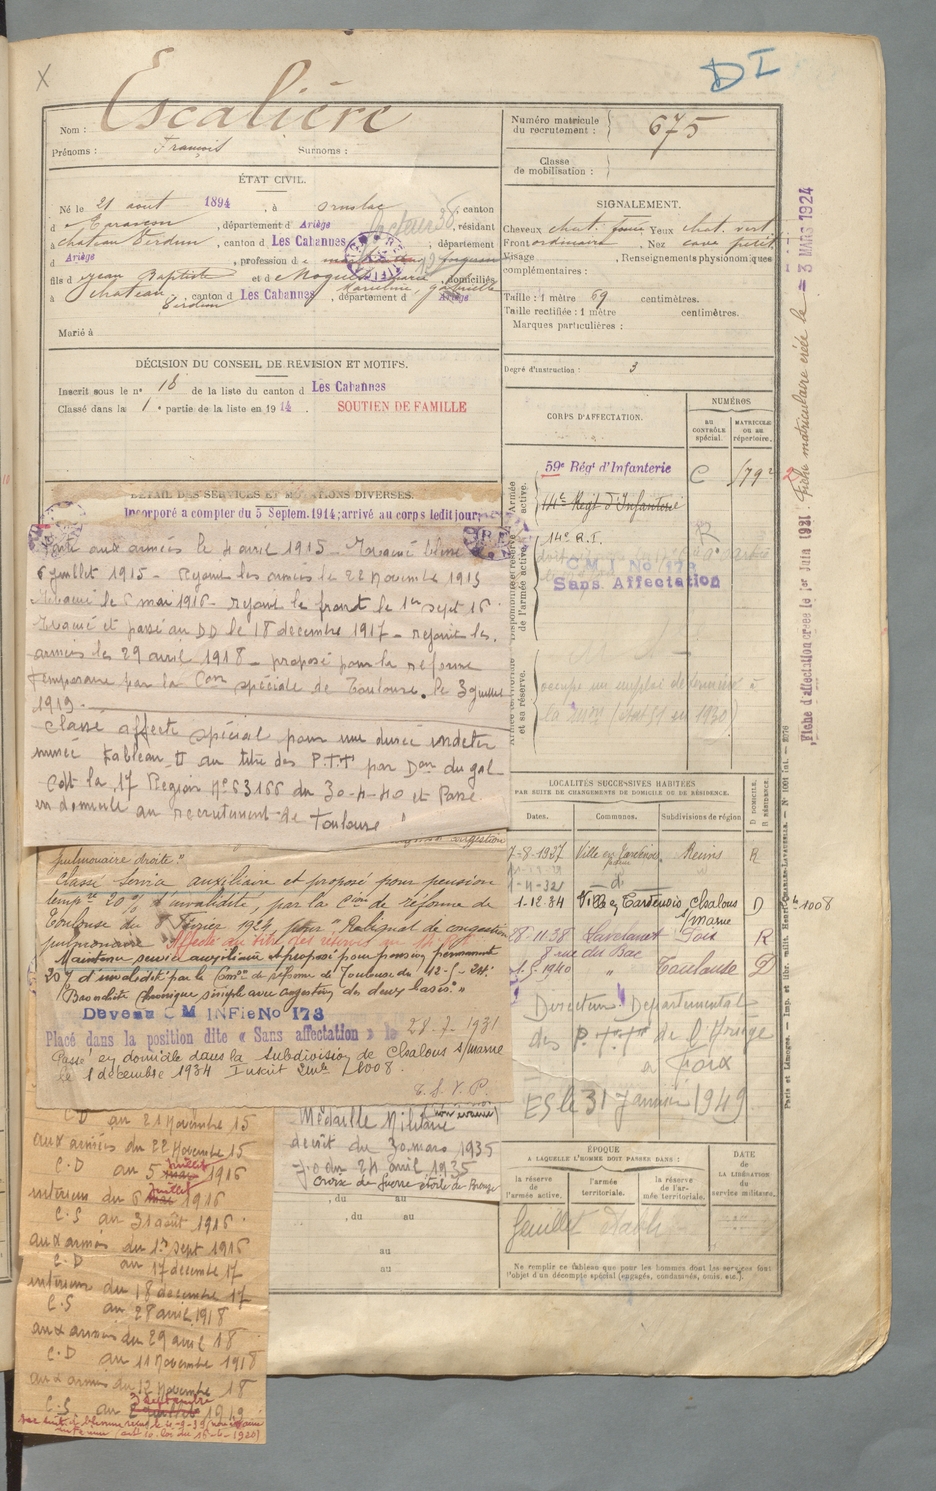 X
DI
Nom : Escalière
Prénoms : François Surnoms :
ÉTAT CIVIL.
Né le 21 août 1894, à Ornolac, canton
d Tarascon, département d' Ariège, résidant
à chateau Verdun, canton d Les Cabannes, département
d Ariège, profession de
fils d Jean Baptiste et de Marie, domiciliés
à chateau Verdun, canton d Les Cabannes, département d' Ariège
facteur
Marié à
DÉCISION DU CONSEIL DE REVISION ET MOTIFS.
Inscrit sous le n° 18 de la liste du canton d Les Cabannes
Classé dans la 1e partie de la liste en 1914. SOUTIEN DE FAMILLE
DÉTAIL DES SERVICES ET MUTATIONS DIVERSES.
Incorporé a compter du 5 Septem. 1914; arrivé au corps ledit jour;
aux armées le 4 avril 1915 - Evacué blessé le
6 juillet 1915 - Rejoint les armées le 22 Novembre 1915
Evacué le 5 mai 1916 - rejoint le front le 1er sept 16.
Evacué et passé au DD le 18 décembre 1917 - rejoint les
armées les 29 avril 1918 - proposé pour la réforme
temporaire par la Con spéciale de Toulouse. le 3 juillet
1919.
Classé affecté spécial pour une durée indéter
minée tableau II au titre des P.T.T par Don du gal
Cdt la 17 Région N° 63166 du 30-4-40 et Passé
en domicile au recrutement de Toulouse.
congestion
pulmonaire droite."
Classé service auxiliaire et proposé pour pension
tempre 20% d'invalidité, par la Cion de réforme de
Toulouse du 8 Février 1924 pour "Reliquat de congestion
pulmonaire
Maintenu service auxiliaire et proposé pour pension permanent
20% d'invalidité par la Comon de réforme de Toulouse du 12-5-24:
"Bronchite chronique simple avec congestion des deux bases."
Devenu C M INFie No 173
Placé dans la position dite « Sans affectation » le 28-7-1931
Passé en domicile dans la subdivision de Chalons s/marne
le 1 décembre 1934 Inscrit 1008.
T. S. V. P.
C D au 21 Novembre 15
aux armées du 22 Novembre 15
C.D au 5 juillet 1916
intérieur du 6 juillet 1916
C.S au 31 août 1916
aux armées du 1er sept 1916
C.D au 17 décembre 17
intérieur du 18 décembre 17
C.S au 28 avril 1918
aux armées du 29 avril 18
C.D au 11 Novembre 1918
aux armées du 12 Novembre 18
C.S. au 1919
Médaille Militaire (voir verso)
décret du 30 mars 1935
J.O du 24 avril 1935
Croix de Guerre étoile de Bronze
, du au
, du au
au
au
Numéro matricule du recrutement : 675
Classe de mobilisation :
SIGNALEMENT.
Cheveux chat. foncé Yeux chat. vert
Front ordinaire, Nez cave petit
Visage , Renseignements physionomiques
complémentaires :
Taille : 1 mètre 69 centimètres.
Taille rectifiée : 1 mètre centimètres.
Marques particulières :
Degré d'instruction : 3
CORPS D'AFFECTATION.
NUMÉROS
AU CONTRÔLE spécial.
MATRICULE OU AU répertoire.
Armée active.
59e Régt d'Infanterie C
14e Régt d'Infanterie
Disponibilité et réserve de l'armée active.
14e R.I.
C.M.I No 173
Sans Affectation
Armée territoriale et sa réserve.
occupe un emploi de à
LOCALITÉS SUCCESSIVES HABITÉES
PAR SUITE DE CHANGEMENTS DE DOMICILE OU DE RÉSIDENCE.
Dates. Communes. Subdivisions de région
D DOMICILE. R RÉSIDENCE.
7-8-1927 Ville en Tardenois Reims R
1-4-32 d°
1-12-34 Ville en Tardenois Chalons s/marne D 1008
28-11-38 Lavelanet Foix R
8 rue du Bac
1.5.1940 " Toulouse D
Directeur Départemental
des P.T.T de l'Ariège
à Foix
ES le 31 Janvier 1949
ÉPOQUE
A LAQUELLE L'HOMME DOIT PASSER DANS :
la réserve de l'armée active.
l'armée territoriale.
la réserve de l'armée territoriale.
DATE de LA LIBÉRATION du service militaire.
feuillet établi
Ne remplir ce tableau que pour les hommes dont les services font l'objet d'un décompte spécial (engagés, condamnés, omis, etc.).
Fiche d'affectation créée le 1er Juin 1931. Fiche matriculaire créée le = 3 MARS 1924
Paris et Limoges. — Imp. et libr. milit. Henri Charles-Lavauzelle. — N° 1001 int. —